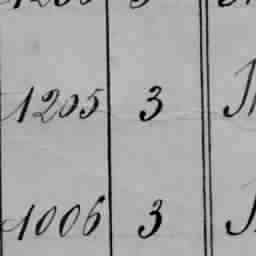 1205 3
1006 3